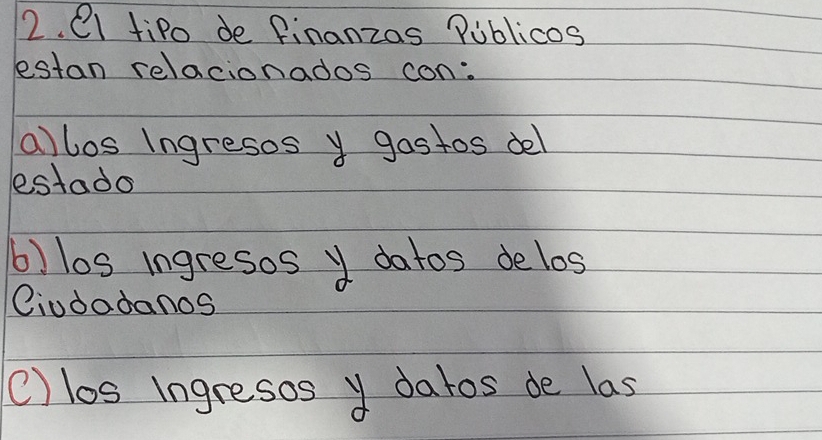 2. El tipo de finanzas Públicos
estan relacionados con:
a) Los Ingresos y gastos del
estado
b) los ingresos y datos de los
Ciudadanos
C) los Ingresos y datos de las